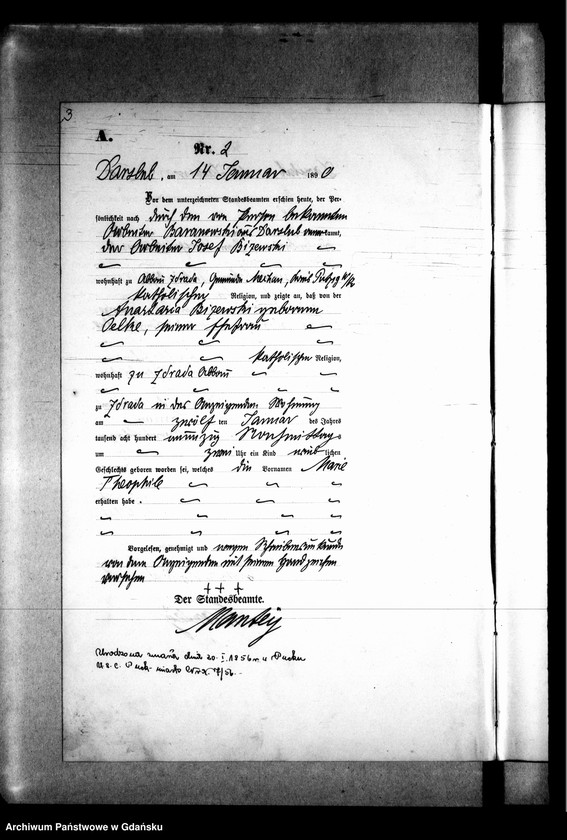 3
A.
Nr. 2
Darslub, am 14 Januar 1890
Vor dem unterzeichneten Standesbeamten erschien heute, der Per-
sönlichkeit nach durch den von Person bekannten
Arbeiter Baranowski aus Darslub anerkannt,
der Arbeiter Josef Bizewski
wohnhaft zu Abbau Zdrada, Gemeinde Mechau, Kreis Putzig W/Pr
katholischer Religion, und zeigte an, daß von der
Anastasia Bizewski geborenen
Oelke, seiner Ehefrau
katholischen Religion,
wohnhaft zu Zdrada Abbau
zu Zdrada in des Anzeigenden Wohnung
am zwölf ten Januar des Jahres
tausend acht hundert neunzig Nachmittags
um zwei Uhr ein Kind weiblichen
Geschlechts geboren worden sei, welches die Vornamen Marie
Theophile
erhalten habe.
Vorgelesen, genehmigt und wegen Schreibensunkunde
von dem Anzeigenden mit seinem Handzeichen
versehen
+++
Der Standesbeamte.
Mantey
Urodzona zmarła dnia 20. I. 1956 r. w Pucku
U.S.C. Puck-miasto
Archiwum Państwowe w Gdańsku